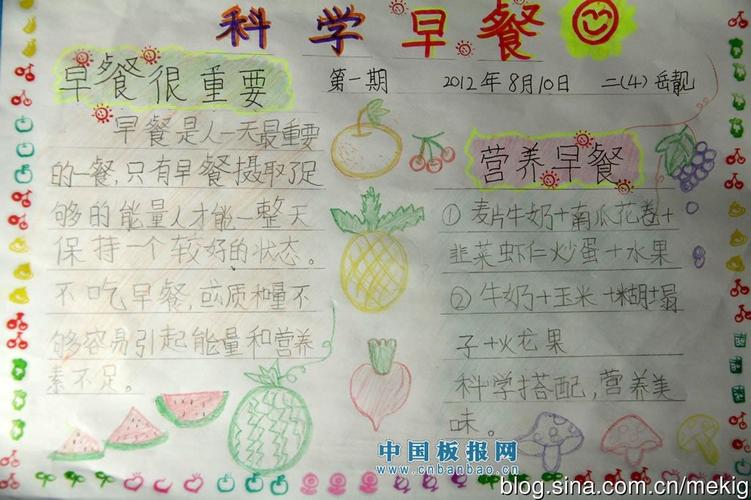 科学早餐
早餐很重要
第一期 2012年8月10日 二(4) 岳靓
早餐是人一天最重要
的一餐,只有早餐摄取了足
够的能量人才能一整天
保持一个较好的状态。
不吃早餐,或质和量不
够容易引起能量和营养
素不足。
营养早餐
①麦片牛奶+南瓜花卷+
韭菜虾仁炒蛋+水果
②牛奶+玉米+糊塌
子+火龙果
科学搭配,营养美
味。
中国板报网
www.cnbanbao.cn
blog.sina.com.cn/mekig